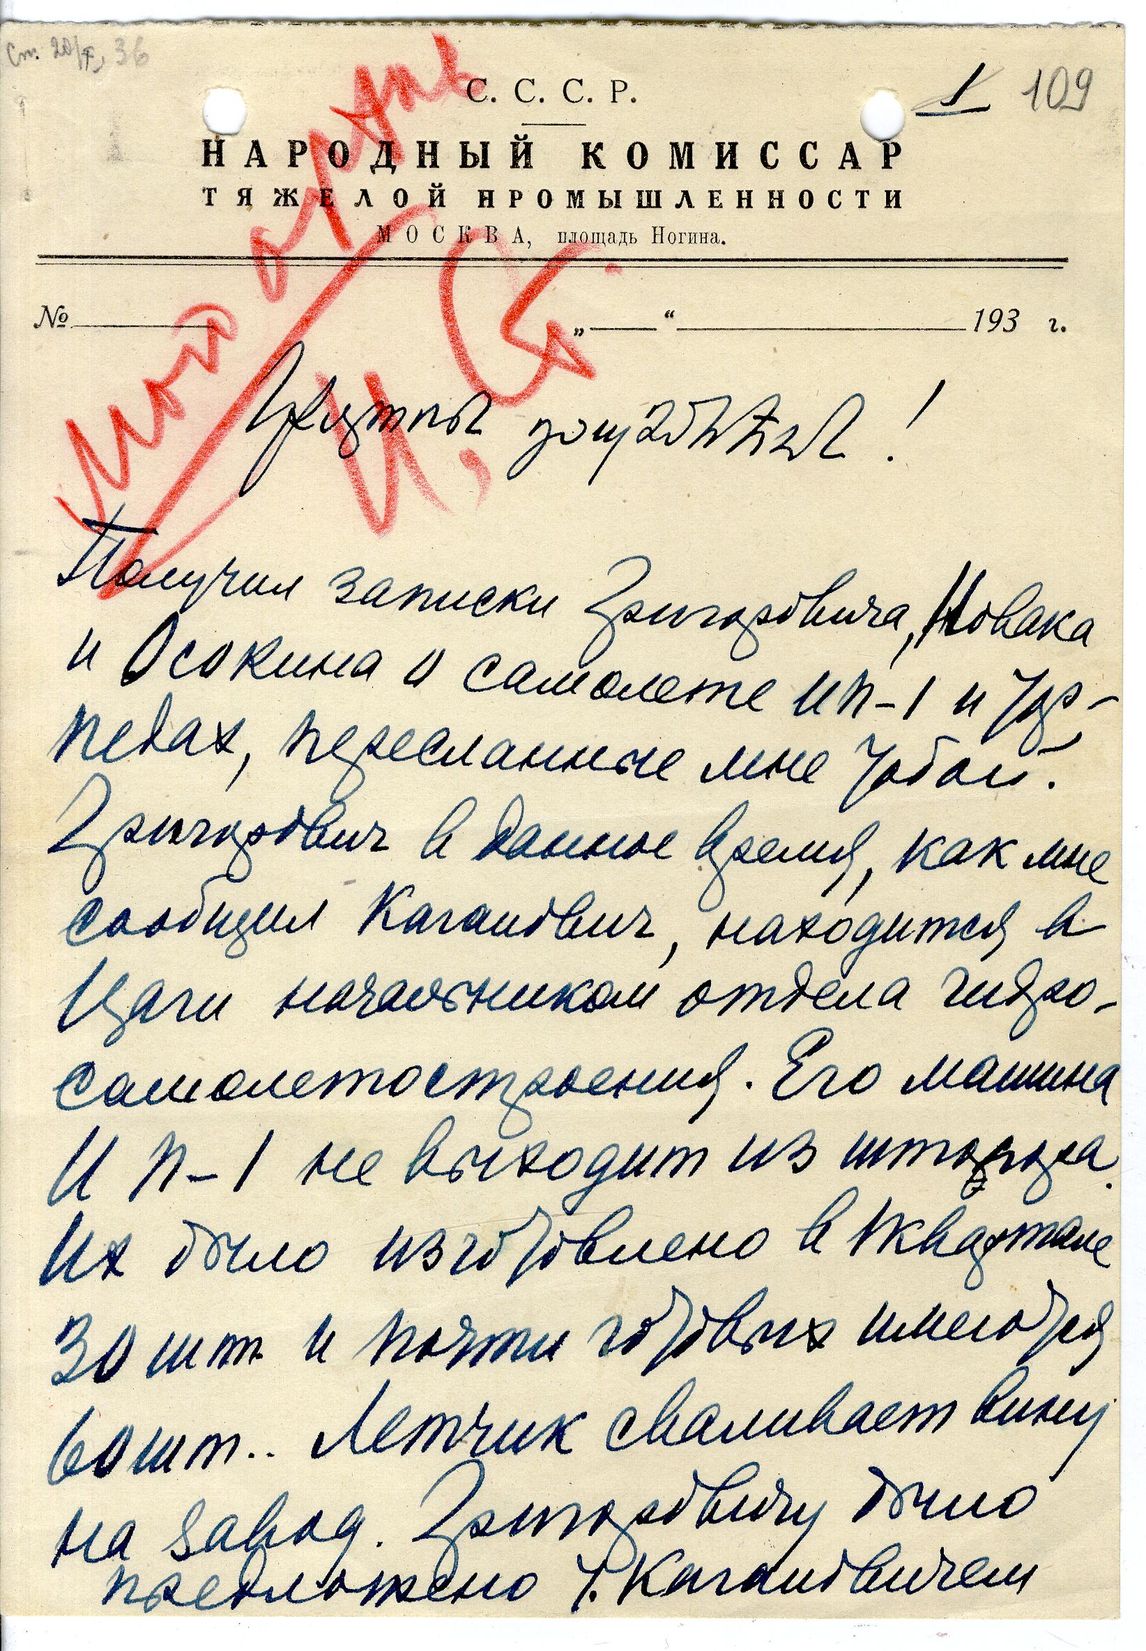 1 109
С. С. С. Р.
НАРОДНЫЙ КОМИССАР
ТЯЖЕЛОЙ ПРОМЫШЛЕННОСТИ
МОСКВА, площадь Ногина.
№ „ “ 193 г.
Мой архив
И. Ст.
Получил записки Григоровича, Новака
и Осокина о самолете ИП-1 и тор-
педах, пересланные мне тобой.
Григорович в данное время, как мне
сообщил Каганович, находится в
Цаги начальником отдела гидро-
самолетостроения. Его машина
ИП-1 не выходит из штопора.
Их было изготовлено в I квартале
30 шт и почти готовых имеются
60 шт.. Летчик сваливает вину
на завод. Григоровичу было
предложено т. Кагановичем